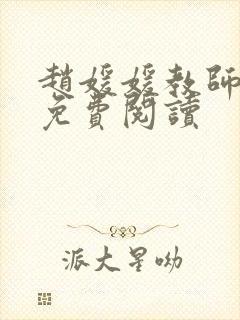 趙媛媛教師
免費閱讀
派大星呦